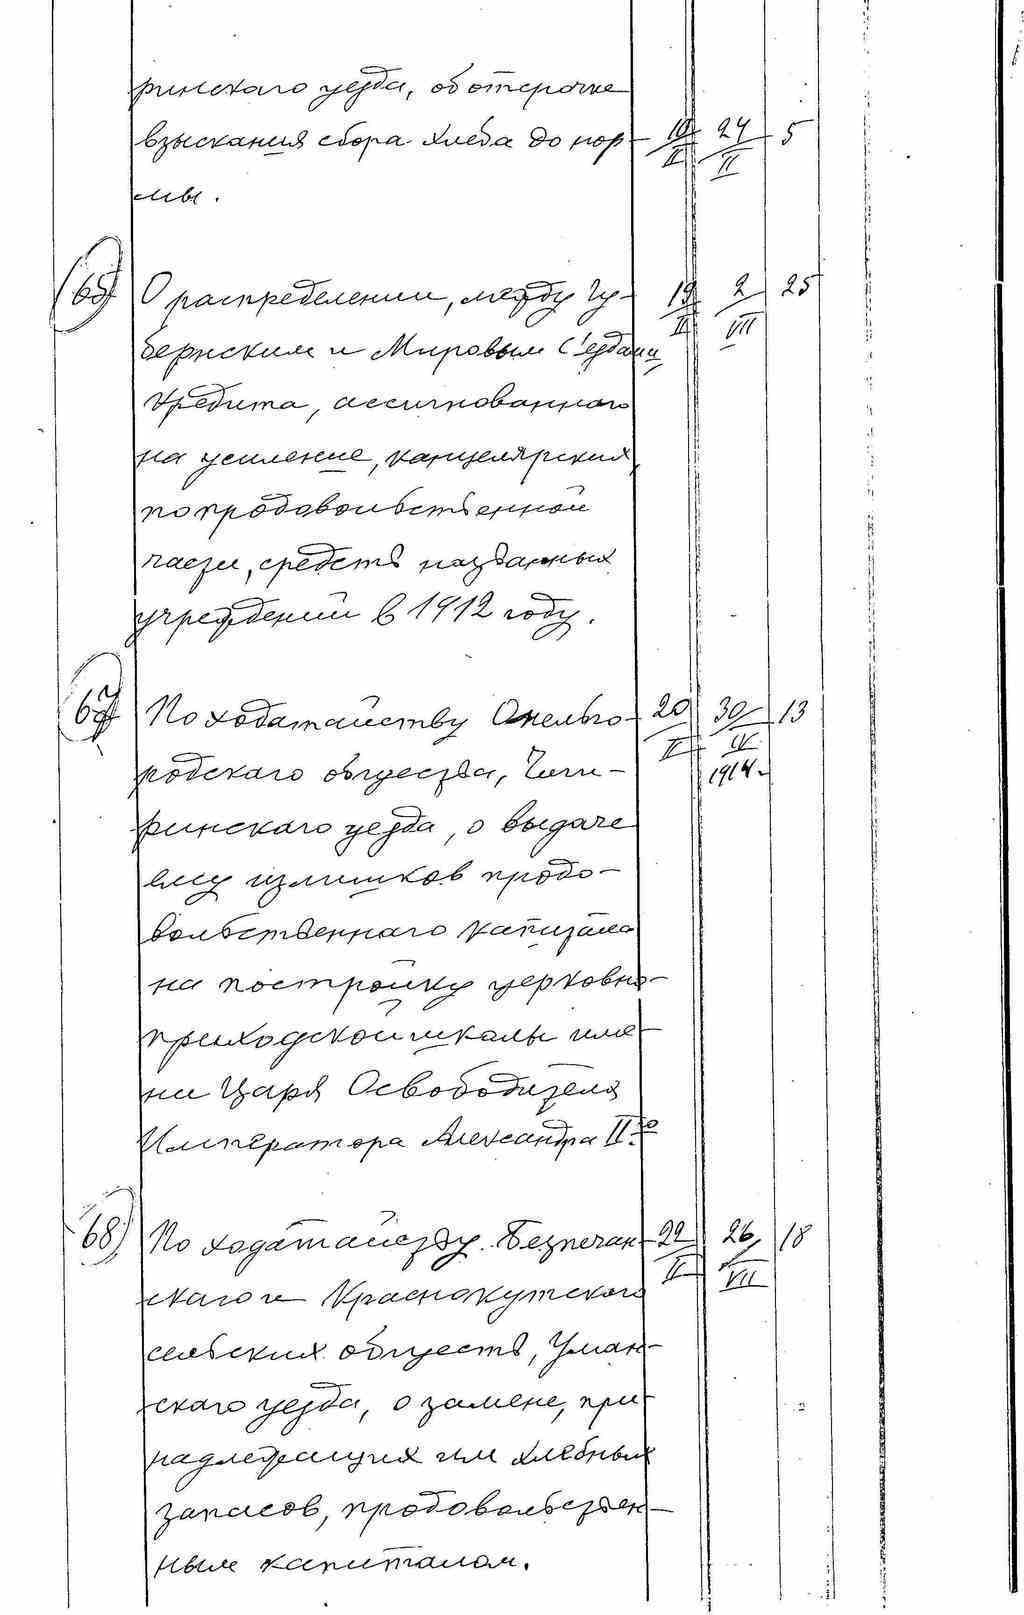 ринскаго уезда, об отсрочке
взыскания сбора хлеба до нор- 10/II 24/II 5
мы.
65 О распределении, между Гу- 19/II 2/VIII 25
бернским и Мировым С'ездами
кредита, ассигнованнаго
на усиление, канцелярских,
по продовольственной
части, средств названных
учреждений в 1912 году.
67 По ходатайству 20/II 30/IV 1914. 13
родскаго общества, Чиги-
ринскаго уезда, о выдаче
ему излишков продо-
вольственнаго капитала
на постройку церковно-
приходской школы име-
ни Царя Освободителя
Императора Александра II-го
68 По ходатайству Безпечан- 22/II 26/VII 18
скаго и Краснокутскаго
сельских обществ, Уман-
скаго уезда, о замене, при-
надлежащих им хлебных
запасов, продовольствен-
ным капиталом.